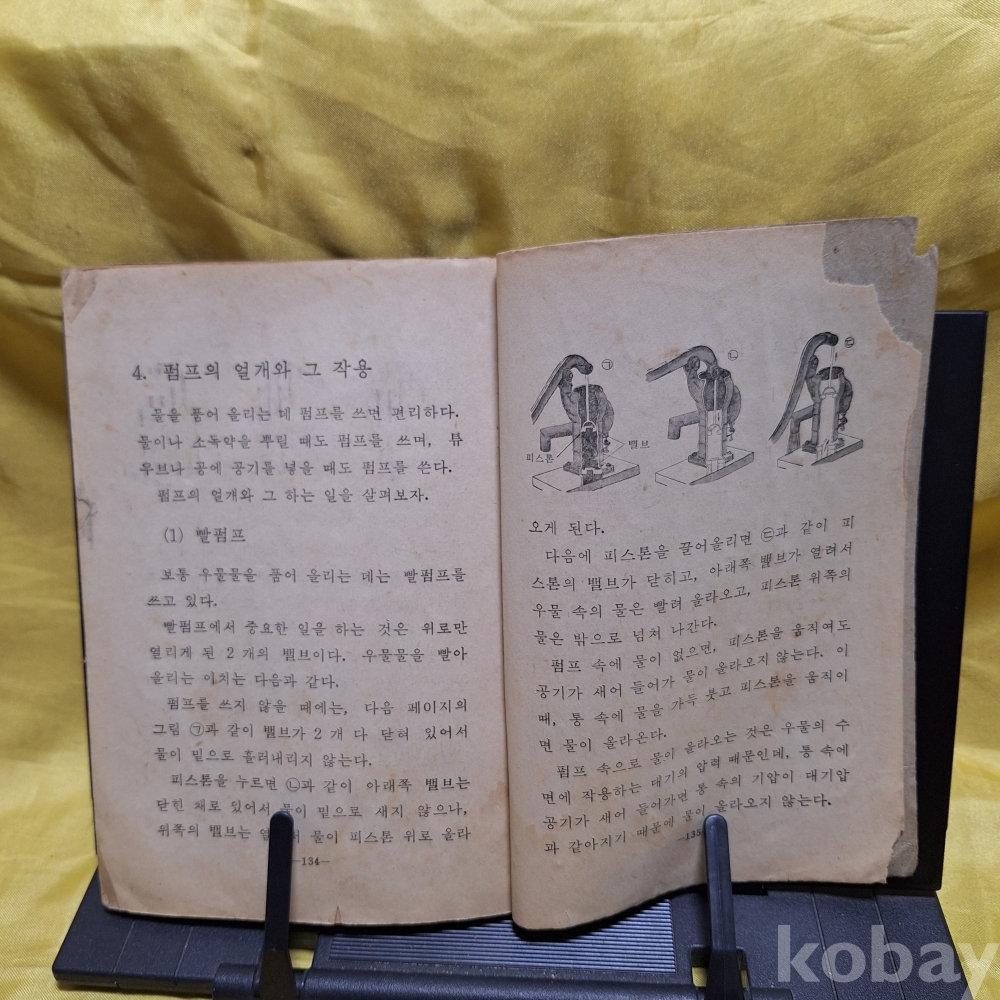 4. 펌프의 얼개와 그 작용
물을 품어 올리는 데 펌프를 쓰면 편리하다.
물이나 소독약을 뿌릴 때도 펌프를 쓰며, 튜
우브나 공에 공기를 넣을 때도 펌프를 쓴다.
펌프의 얼개와 그 하는 일을 살펴보자.
(1) 빨펌프
보통 우물물을 품어 올리는 데는 빨펌프를
쓰고 있다.
빨펌프에서 중요한 일을 하는 것은 위로만
열리게 된 2 개의 밸브이다. 우물물을 빨아
올리는 이치는 다음과 같다.
펌프를 쓰지 않을 때에는, 다음 페이지의
그림 ㉠과 같이 밸브가 2 개 다 닫혀 있어서
물이 밑으로 흘러내리지 않는다.
피스톤을 누르면 ㉡과 같이 아래쪽 밸브는
닫힌 채로 있어서 물이 밑으로 새지 않으나,
위쪽의 밸브는 물이 피스톤 위로 올라
—134—
㉠
㉡
㉢
피스톤
밸브
오게 된다.
다음에 피스톤을 끌어올리면 ㉢과 같이 피
스톤의 밸브가 닫히고, 아래쪽 밸브가 열려서
우물 속의 물은 빨려 올라오고, 피스톤 위쪽의
물은 밖으로 넘쳐 나간다.
펌프 속에 물이 없으면, 피스톤을 움직여도
공기가 새어 들어가 물이 올라오지 않는다. 이
때, 통 속에 물을 가득 붓고 피스톤을 움직이
면 물이 올라온다.
펌프 속으로 물이 올라오는 것은 우물의 수
면에 작용하는 대기의 압력 때문인데, 통 속에
공기가 새어 들어가면 통 속의 기압이 대기압
과 같아지기 때문에 물이 올라오지 않는다.
—135
kobay